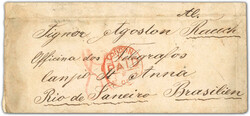 Al.
Signor Agoston Rauch
Officina dos Telegrafos
Canpo St Anna
Rio de Janeiro Brasilien
PAID